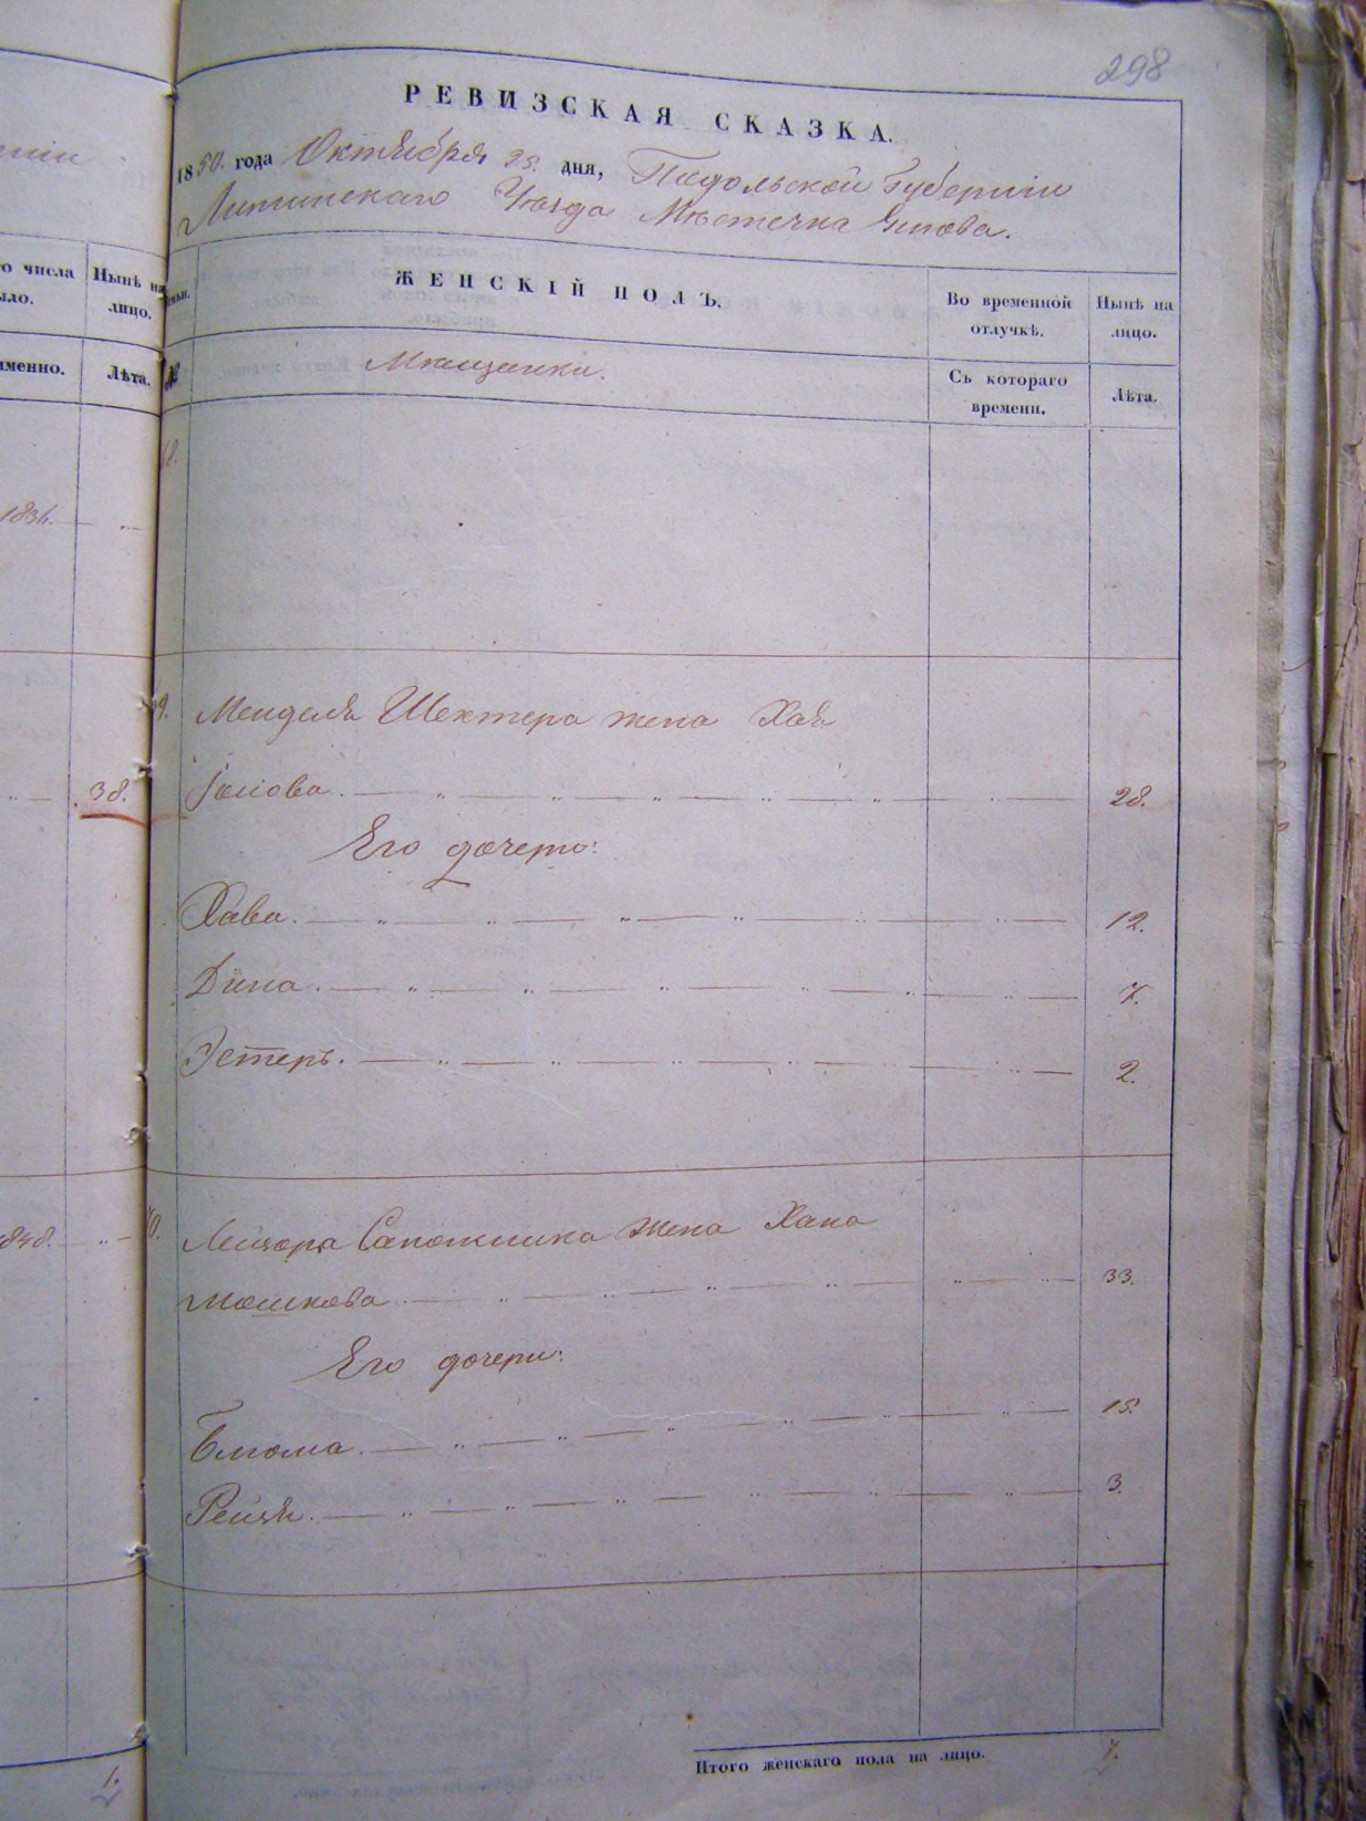 298
РЕВИЗСКАЯ СКАЗКА.
1850. года Октября 25. дня, Подольской Губерніи
Литинскаго Уѣзда Мѣстечка Янова.
о числа
ыло.
Нынѣ на
лицо.
именно.
Лѣта.
№
ЖЕНСКІЙ ПОЛЪ.
Во временной
отлучкѣ.
Нынѣ на
лицо.
Мѣщанки.
Съ котораго
времени.
Лѣта.
Менделя Шехтера жена Хая
Іосіова. 28.
38.
Его дочери:
Хава. 12.
Дина. 7.
Эстеръ. 2.
Лейзора Сапожника жена Хана
Мошкова 33.
Его дочери:
Блюма. 15.
Рейзя. 3.
Итого женскаго пола на лицо. 7.
1.